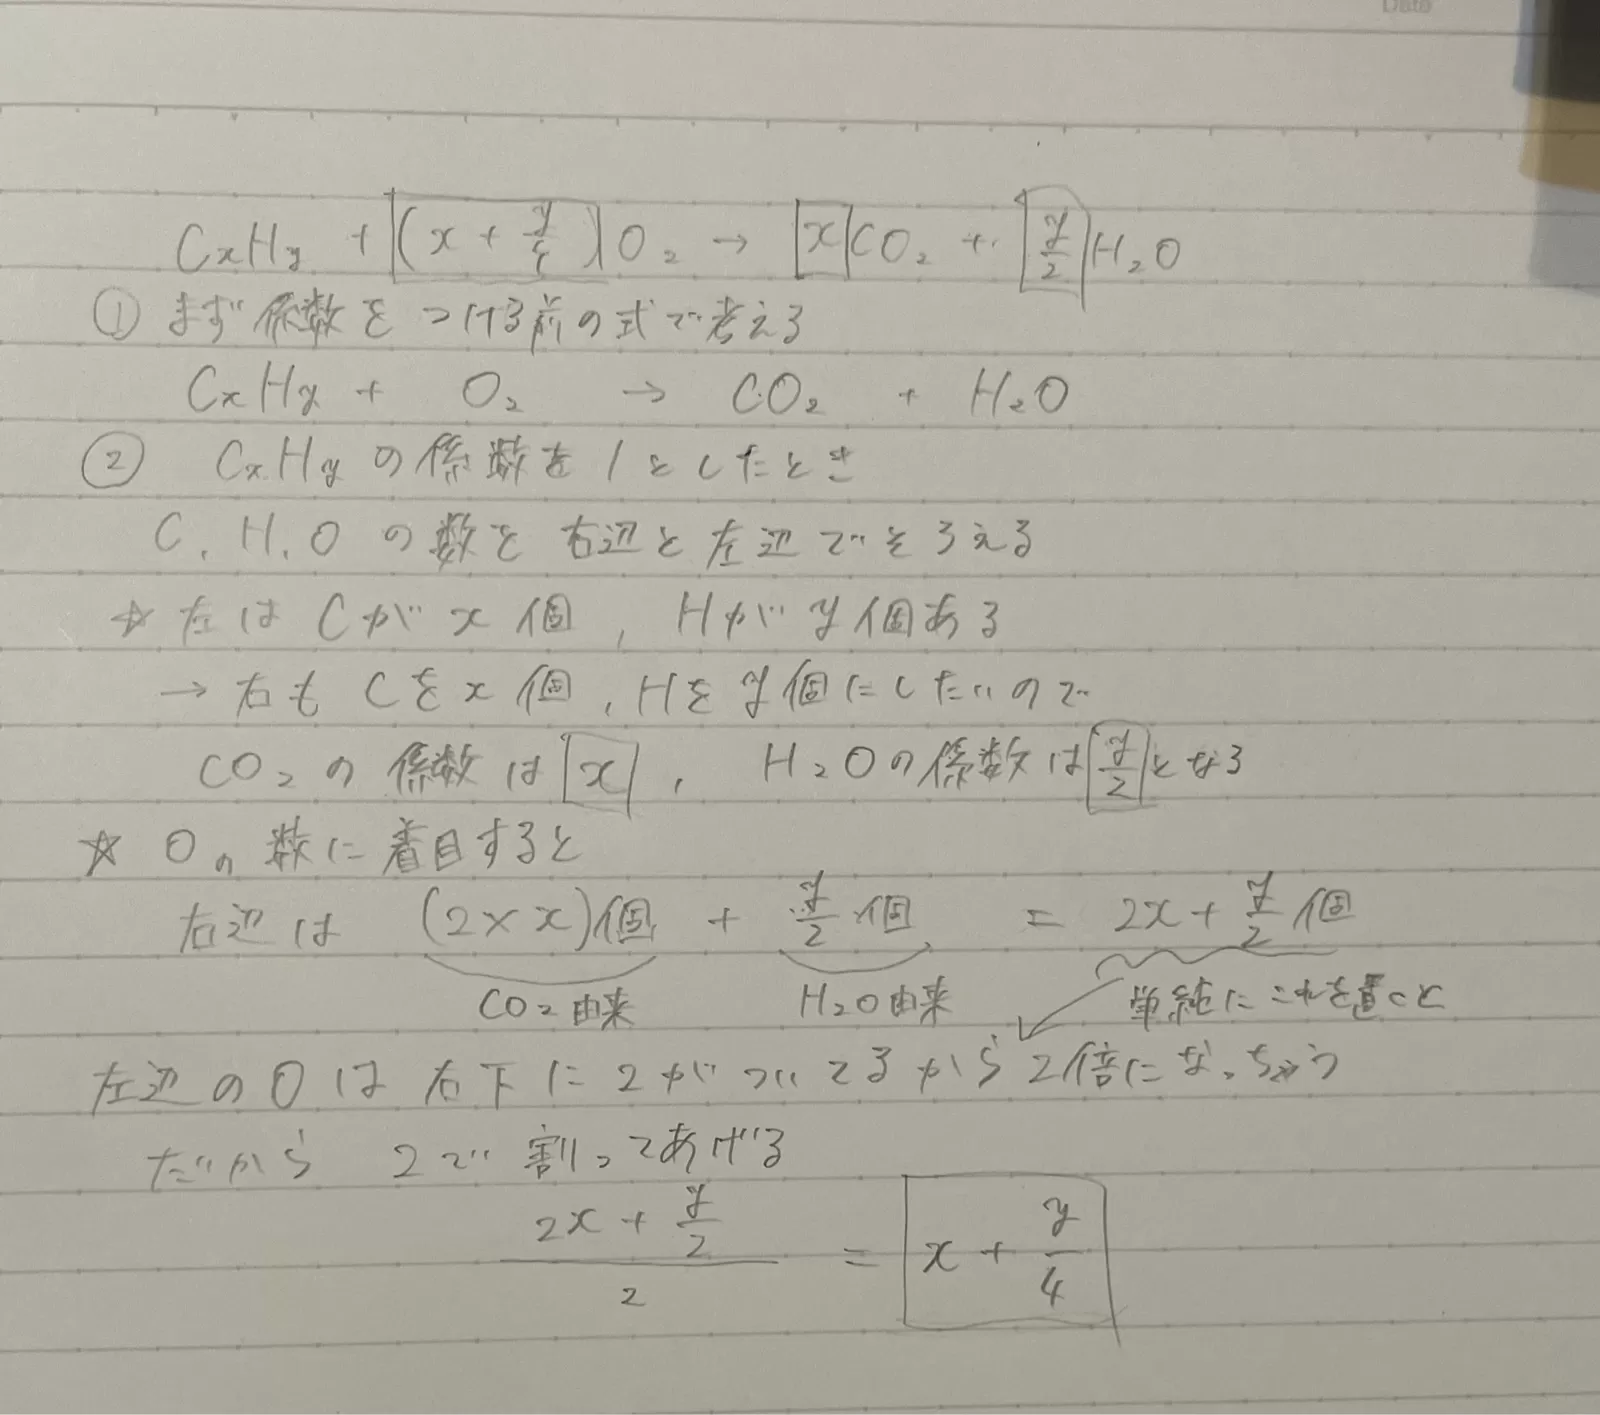 Date
CxHy + (x + y/4)O₂ → xCO₂ + y/2 H₂O
① まず係数をつける前の式で考える
CxHy + O₂ → CO₂ + H₂O
② CxHyの係数を1としたとき
C, H, Oの数を右辺と左辺でそろえる
☆ 左はCがx個, Hがy個ある
→ 右もCをx個, Hをy個にしたいので
CO₂の係数はx, H₂Oの係数はy/2となる
☆ Oの数に着目すると
右辺は (2×x)個 + y/2個 = 2x + y/2個
CO₂由来 H₂O由来 単純にこれを置くと
左辺のOは右下に2がついてるから2倍になっちゃう
だから 2で割ってあげる
(2x + y/2)/2 = x + y/4